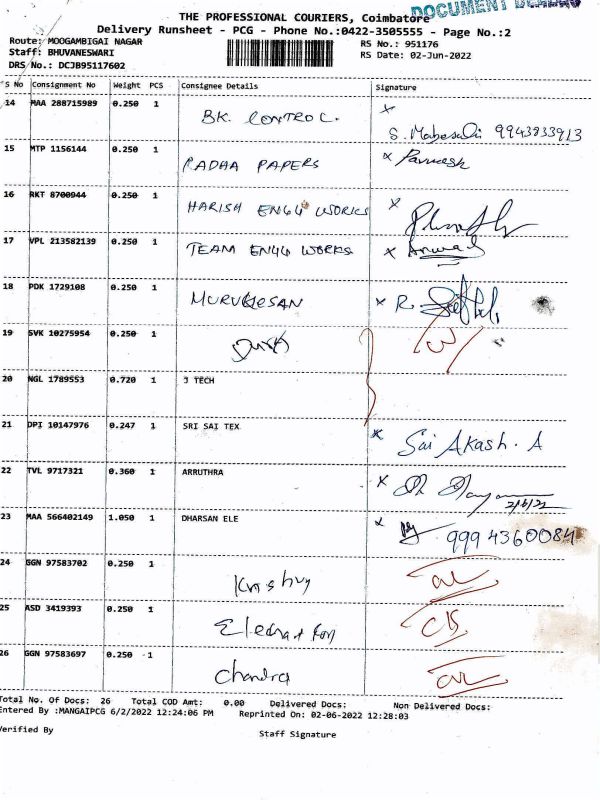 DOCUMENT
THE PROFESSIONAL COURIERS, Coimbatore
Delivery Runsheet - PCG - Phone No.:0422-3505555 - Page No.:2
Route: MOOGAMBIGAI NAGAR RS No.: 951176
Staff: BHUVANESWARI RS Date: 02-Jun-2022
DRS No.: DCJB95117602
S No Consignment No Weight PCS Consignee Details Signature
14 MAA 288715989 0.250 1 BK. CONTROL. x
9943933913
15 MTP 1156144 0.250 1 RADHA PAPERS x
16 RKT 8700944 0.250 1 HARISH ENGG WORKS x
17 VPL 213582139 0.250 1 TEAM ENGG WORKS x
18 PDK 1729108 0.250 1 MURUGESAN x R.
19 SVK 10275954 0.250 1
20 NGL 1789553 0.720 1 J TECH
21 DPI 10147976 0.247 1 SRI SAI TEX x Sai Akash. A
22 TVL 9717321 0.360 1 ARRUTHRA x
2/6/22
23 MAA 566402149 1.050 1 DHARSAN ELE x 9994360084
24 GGN 97583702 0.250 1
25 ASD 3419393 0.250 1
26 GGN 97583697 0.250 -1 Chandra
Total No. Of Docs: 26 Total COD Amt: 0.00 Delivered Docs: Non Delivered Docs:
Entered By :MANGAIPCG 6/2/2022 12:24:06 PM Reprinted On: 02-06-2022 12:28:03
Verified By Staff Signature